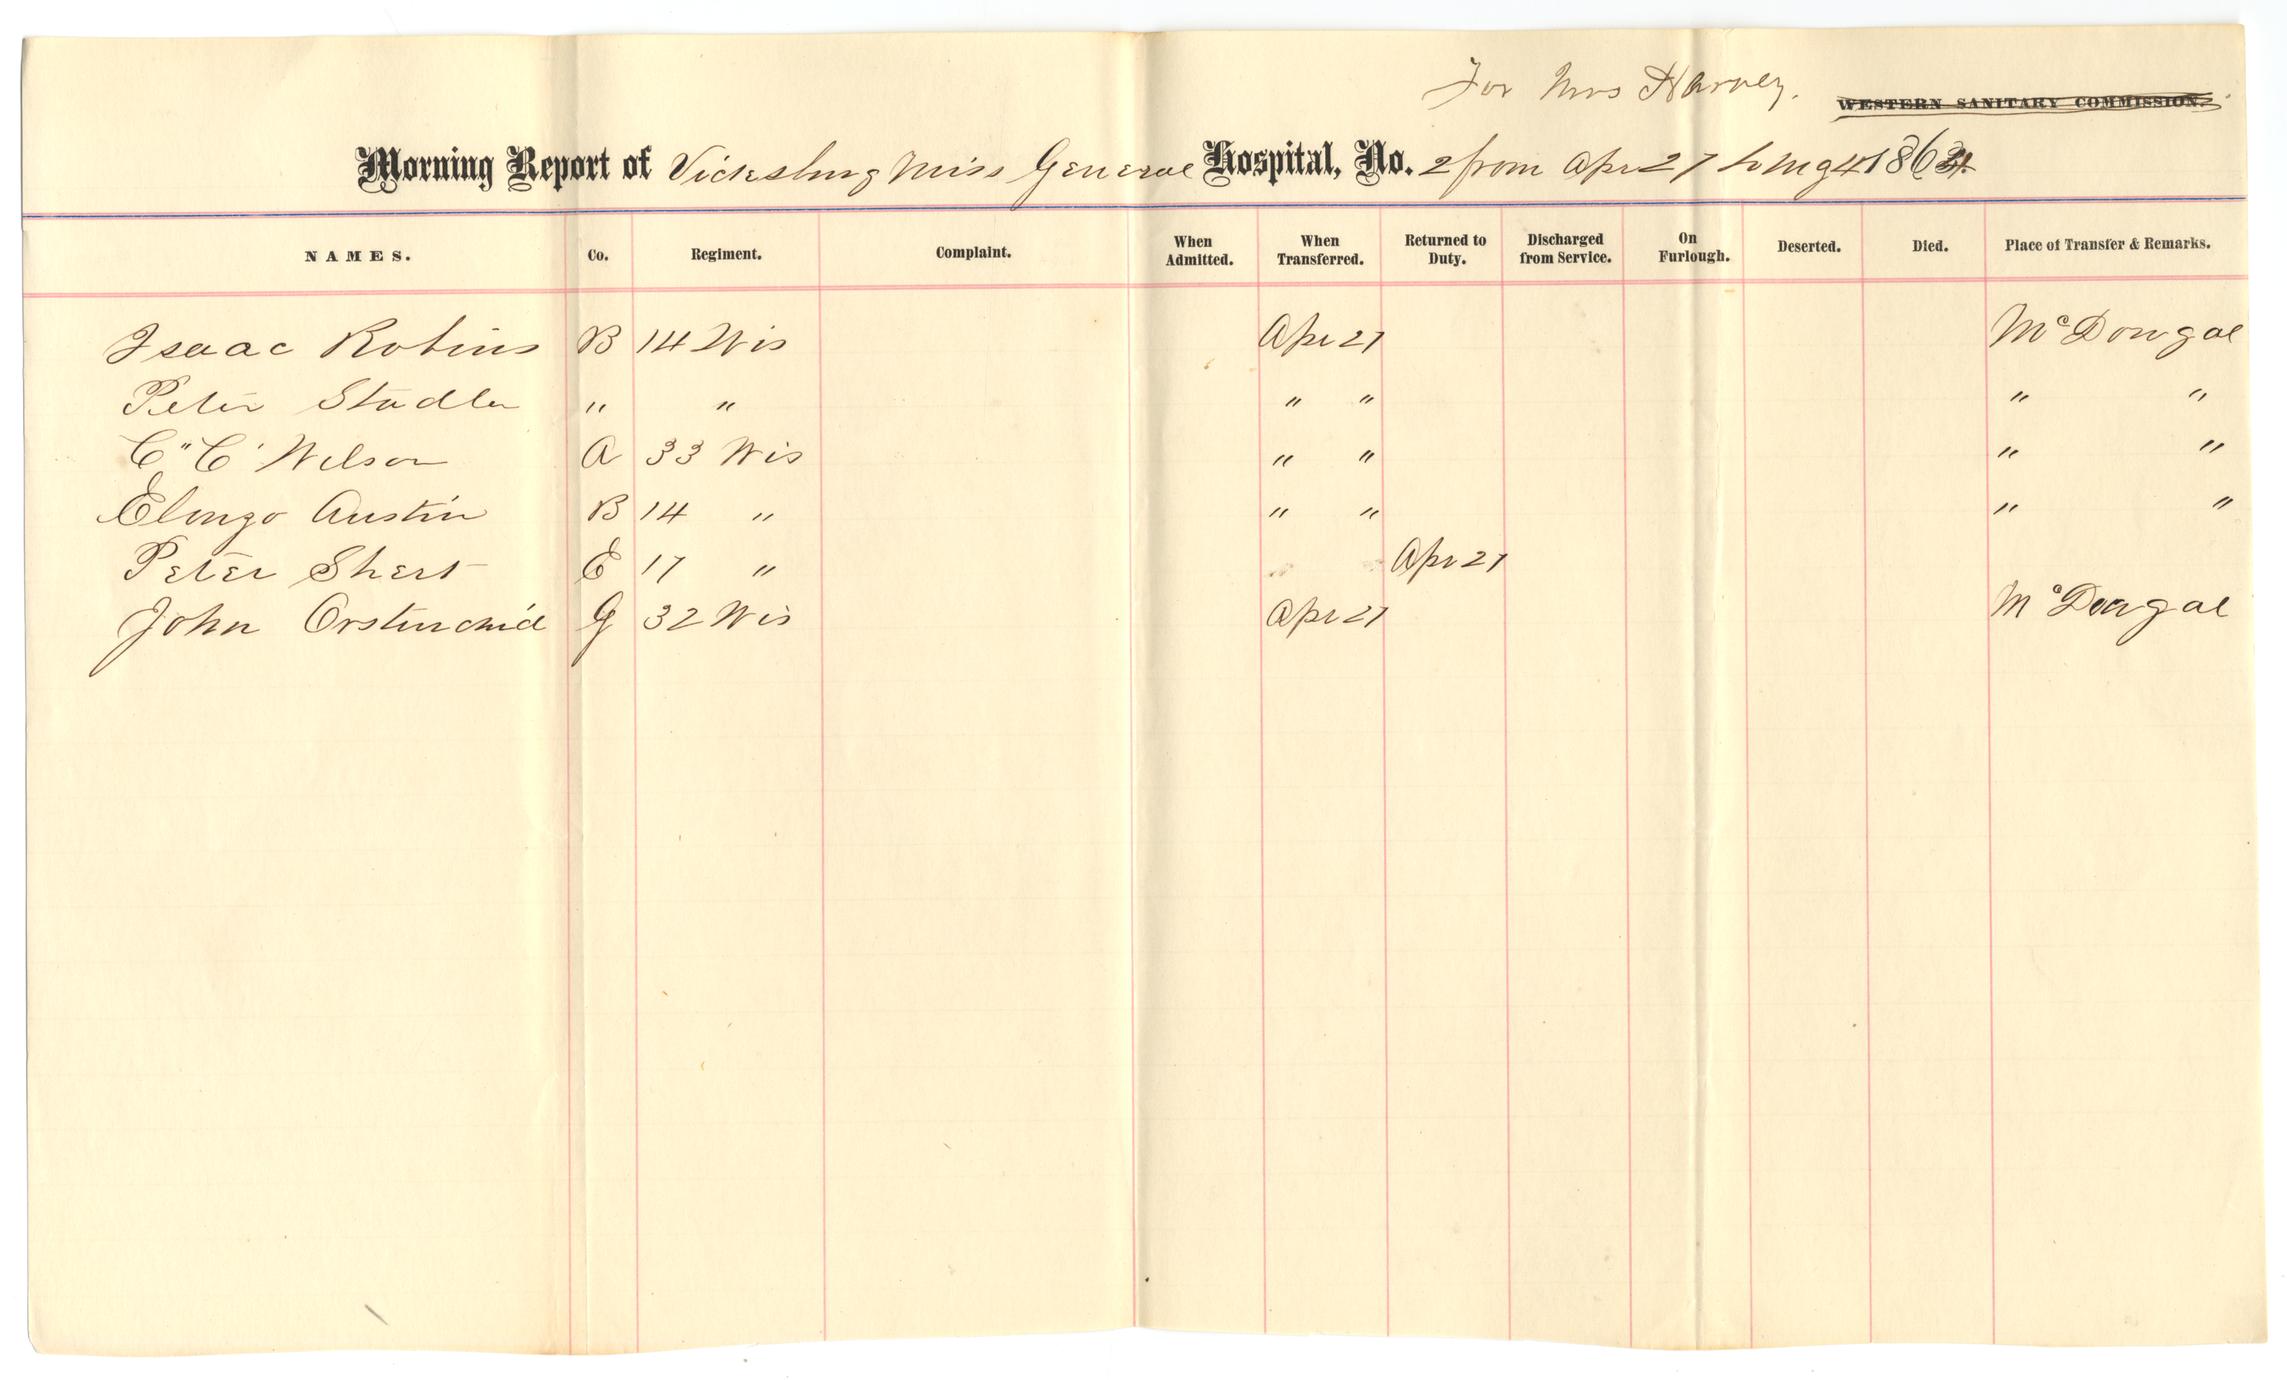 For Mrs Harvey.
WESTERN SANITARY COMMISSION.
Morning Report of Vicksburg Miss General Hospital, No. 2 from Apr 27 to My 4 1864.
NAMES. Co. Regiment. Complaint. When Admitted. When Transferred. Returned to Duty. Discharged from Service. On Furlough. Deserted. Died. Place of Transfer & Remarks.
Isaac Robins B 14 Wis Apr 27 McDougal
Peter Stadler " " " " " "
C" C' Wilson A 33 Wis " " " "
Elongo Austin B 14 " " " " "
Peter Shert E 17 " Apr 27
John G 32 Wis Apr 27 McDougal